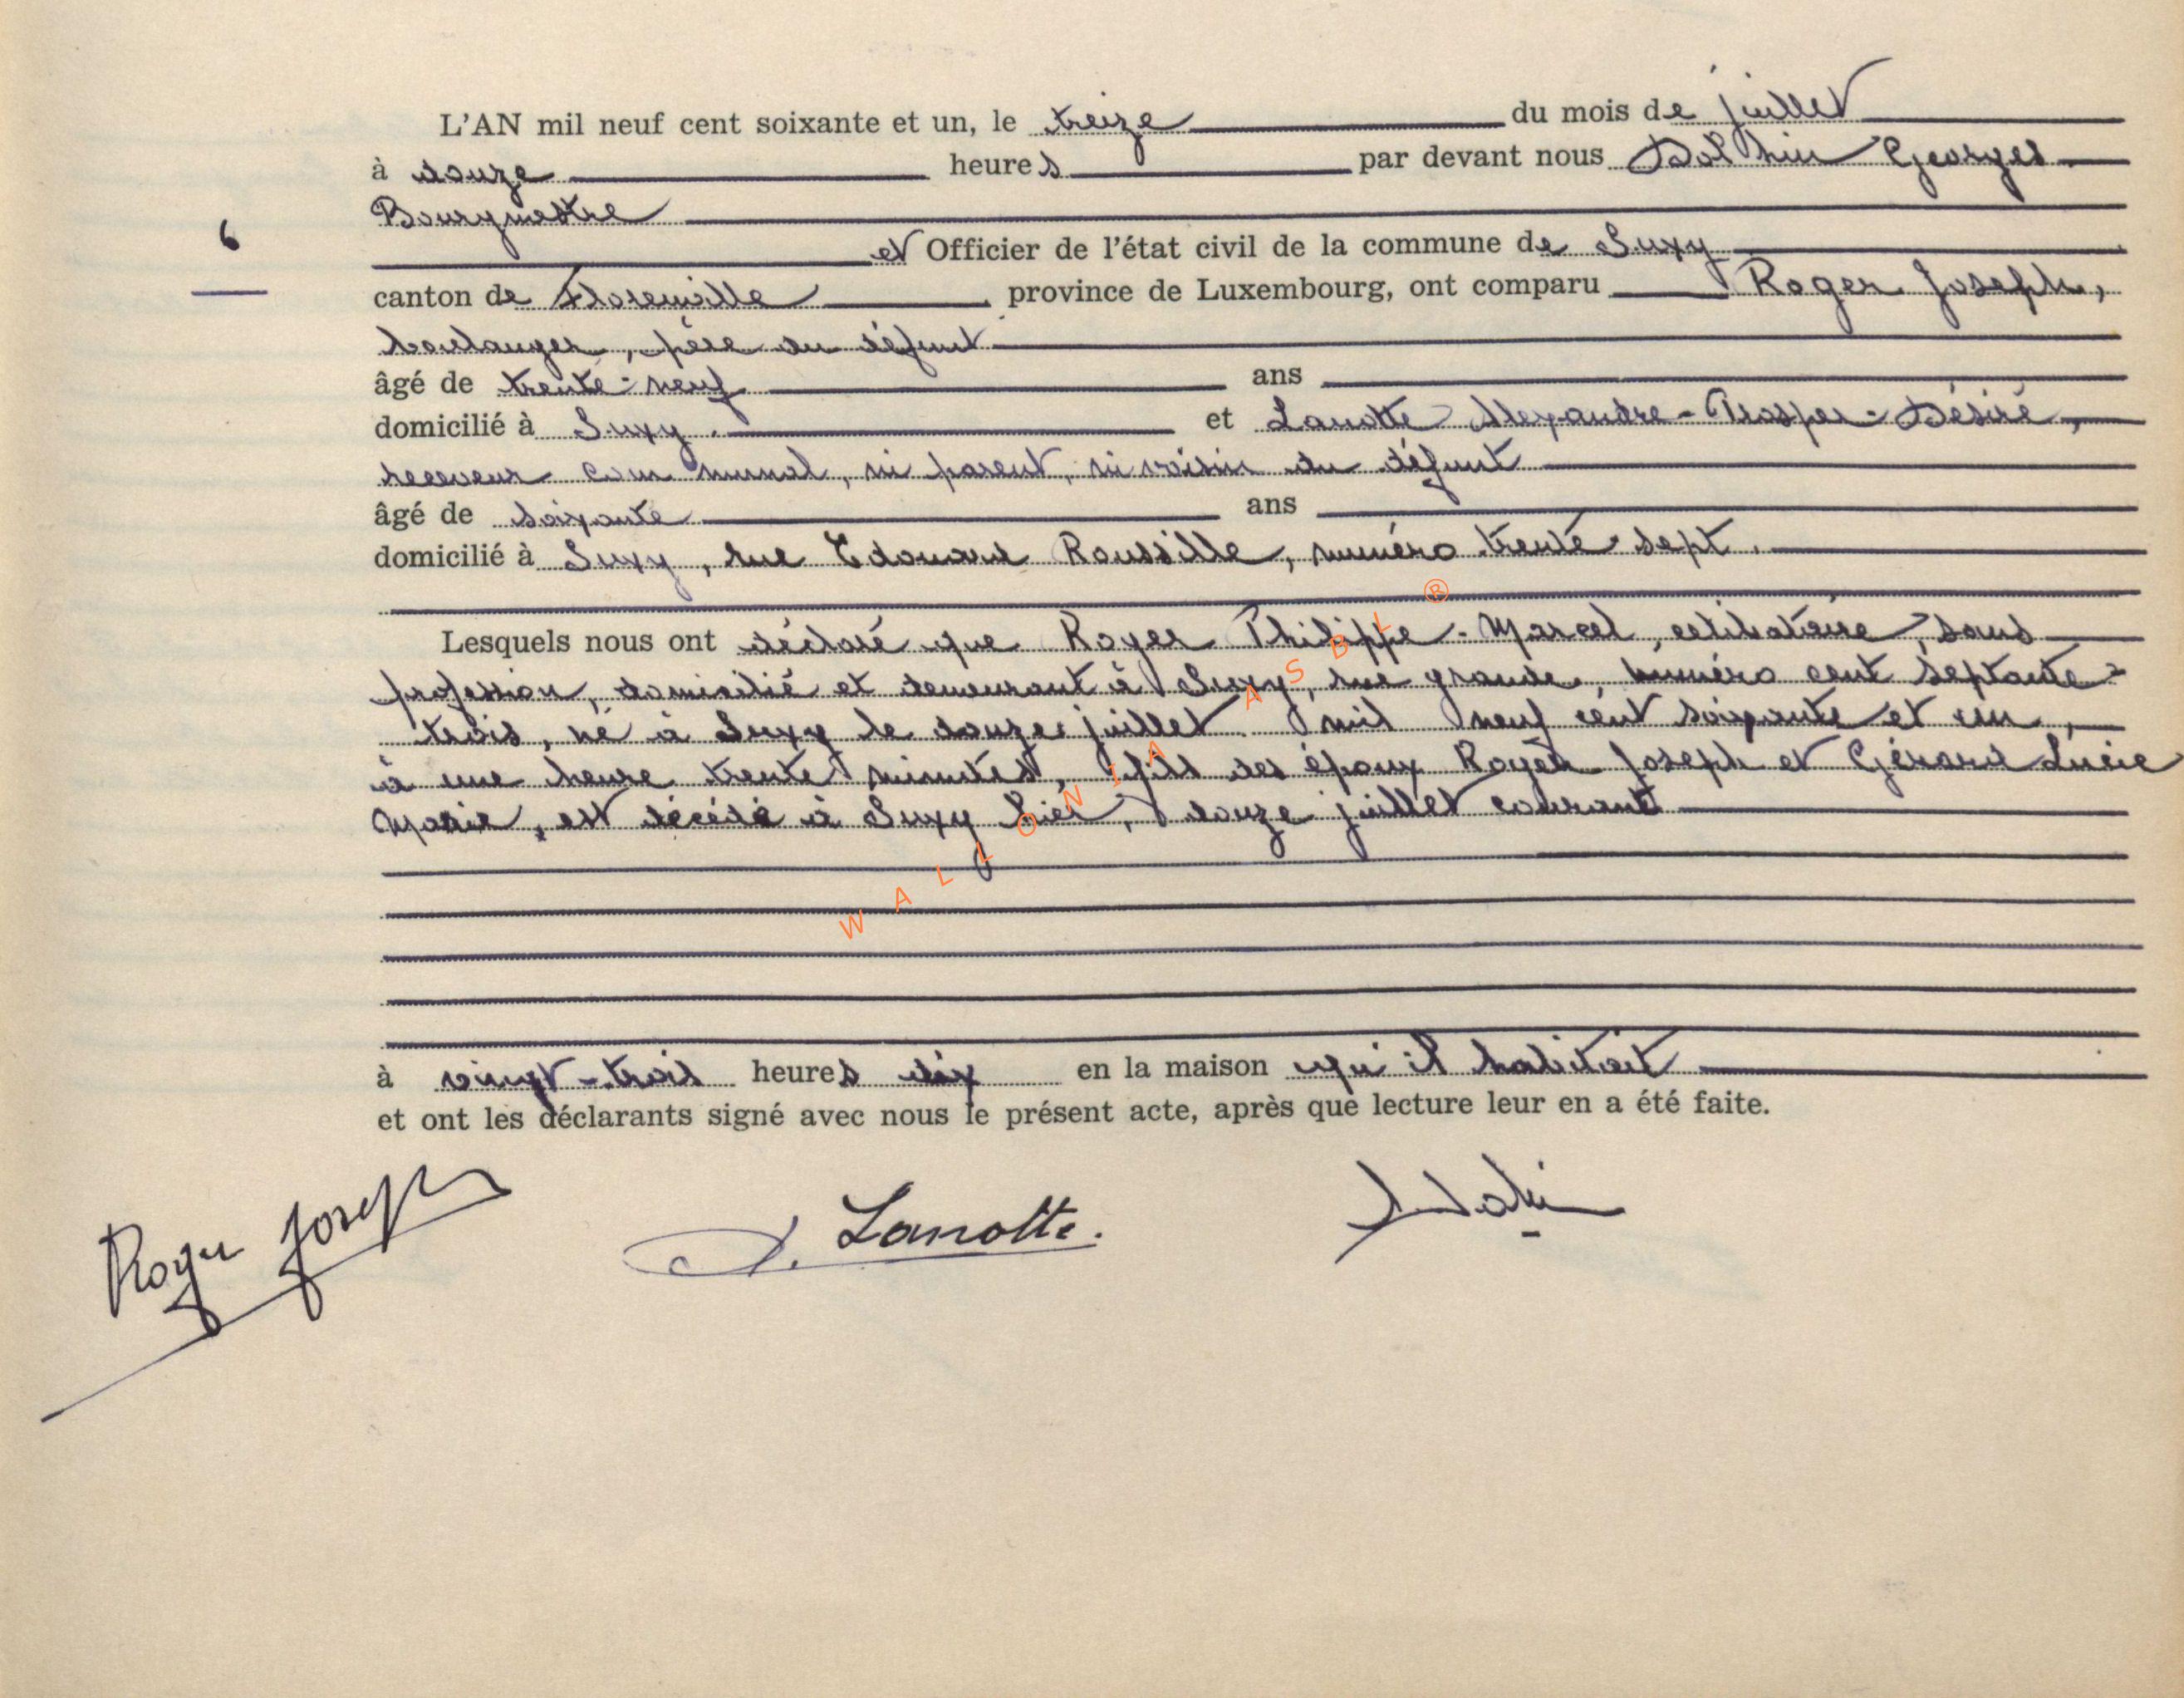 L'AN mil neuf cent soixante et un, le treize du mois de juillet
à douze heures par devant nous Georges
Bourgmestre
6
et Officier de l'état civil de la commune de Suxy
canton de Florenville province de Luxembourg, ont comparu Roger Joseph,
boulanger, père du défunt
âgé de trente-neuf ans
domicilié à Suxy. et Lanotte Alexandre-Prosper-Désiré,
receveur communal, ni parent, ni voisin du défunt
âgé de soixante ans
domicilié à Suxy, rue Edouard Roussille, numéro trente-sept.
Lesquels nous ont déclaré que Roger Philippe-Marcel, célibataire, sans
profession, domicilié et demeurant à Suxy, rue grande, numéro cent septante-
trois, né à Suxy le douze juillet mil neuf cent soixante et un,
à une heure trente minutes, fils des époux Roger Joseph et Gérard Lucie
Marie, est décédé à Suxy hier, douze juillet courant
WALLONIA ASBL ®
à vingt-trois heures dix en la maison qu'il habitait
et ont les déclarants signé avec nous le présent acte, après que lecture leur en a été faite.
Roger Joseph
Lanotte.